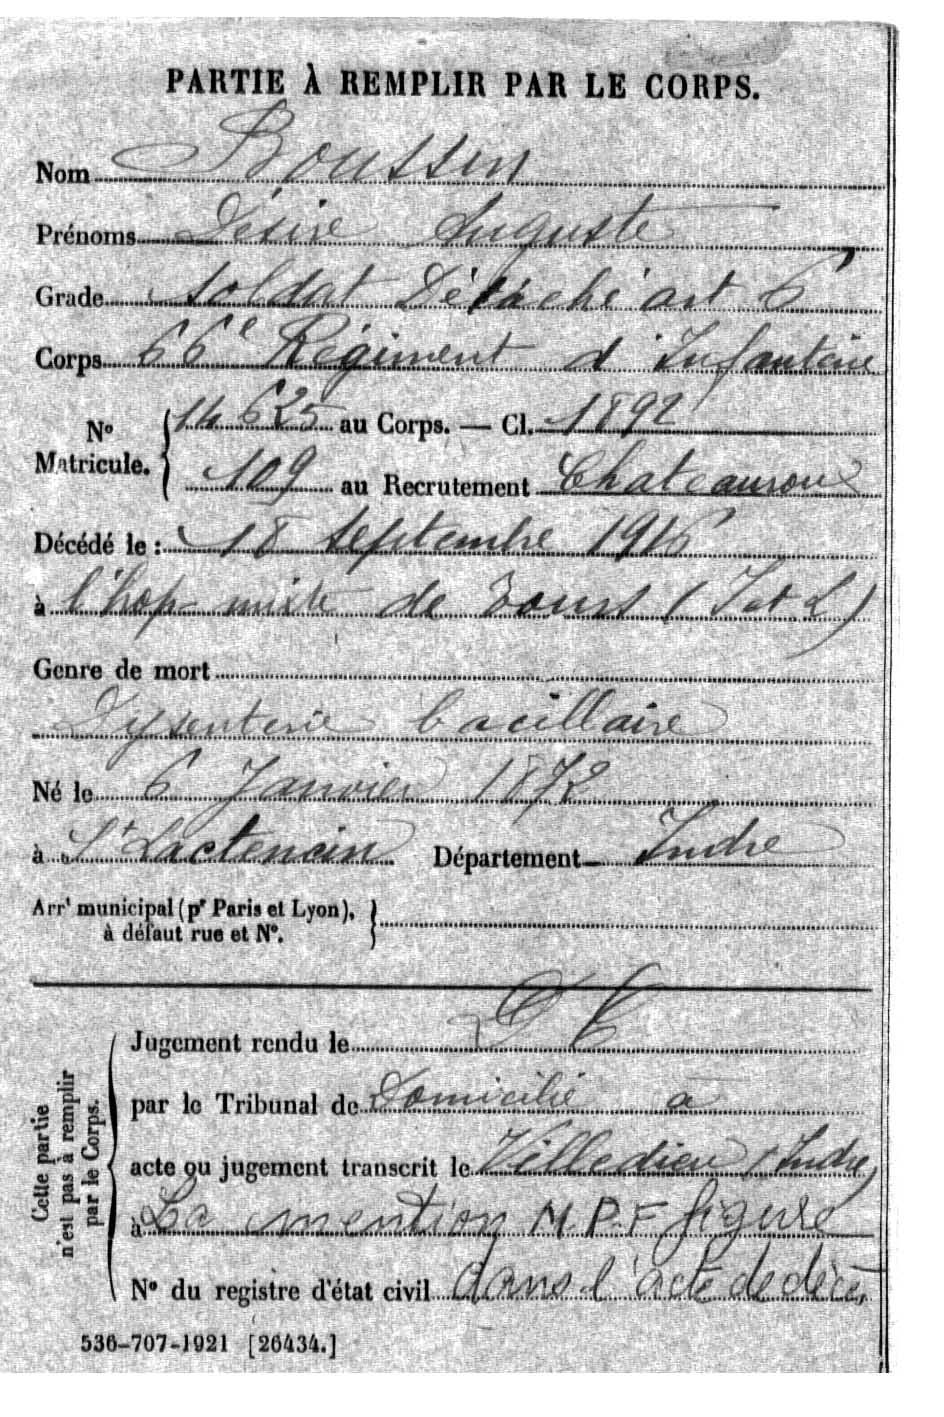 PARTIE À REMPLIR PAR LE CORPS.
Nom Boussin
Prénoms Désiré Auguste
Grade soldat Détaché art 6
Corps 66e Régiment d'Infanterie
No Matricule. 14625 au Corps. — Cl. 1892
109 au Recrutement Chateauroux
Décédé le : 18 Septembre 1916
à l'hop mixte de Tours (I et L)
Genre de mort
Dysenterie bacillaire
Né le 6 Janvier 1872
à St Lactencin Département Indre
Arrt municipal (pr Paris et Lyon),
à défaut rue et No.
Cette partie
n'est pas à remplir
par le Corps.
Jugement rendu le
par le Tribunal de Domicilié à
acte ou jugement transcrit le Villedieu (Indre)
à La mention M.P.F figure
No du registre d'état civil dans l'acte de décès
536-707-1921 [26434.]